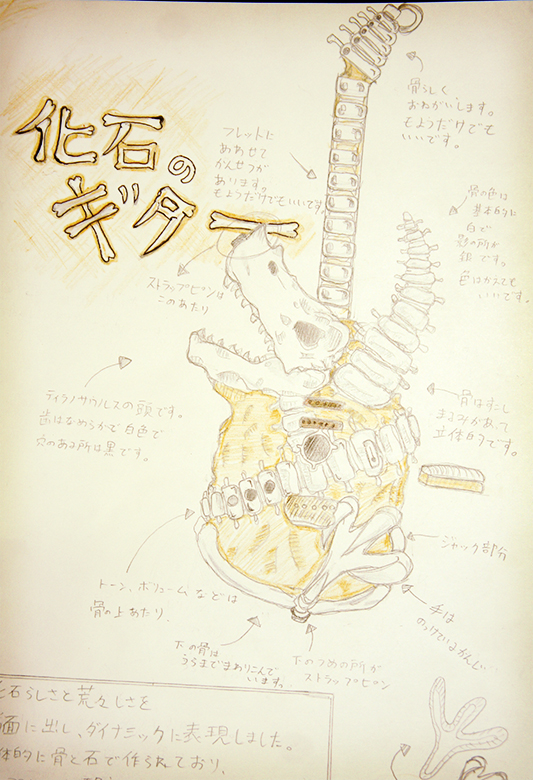 化石の
ギター
骨らしく
おねがいします。
もようだけでも
いいです。
フレットに
あわせて
かんせつが
あります。
もようだけでもいいです
骨の色は
基本的に
白で
影の所が
銀です。
色はかえても
いいです。
ストラップピンは
このあたり
ティラノサウルスの頭です。
歯はなめらかで白色で
穴のある所は黒です。
骨はすこし
まるみがあって
立体的です。
ジャック部分
トーン、ボリュームなどは
骨の上あたり、
手は
のっけているかんじ…
下の骨は
うらまでまわりこんで
います。
下のつめの所が
ストラップピン
化石らしさと荒々しさを
面に出し、ダイナミックに表現しました。
体的に骨と石で作られており、